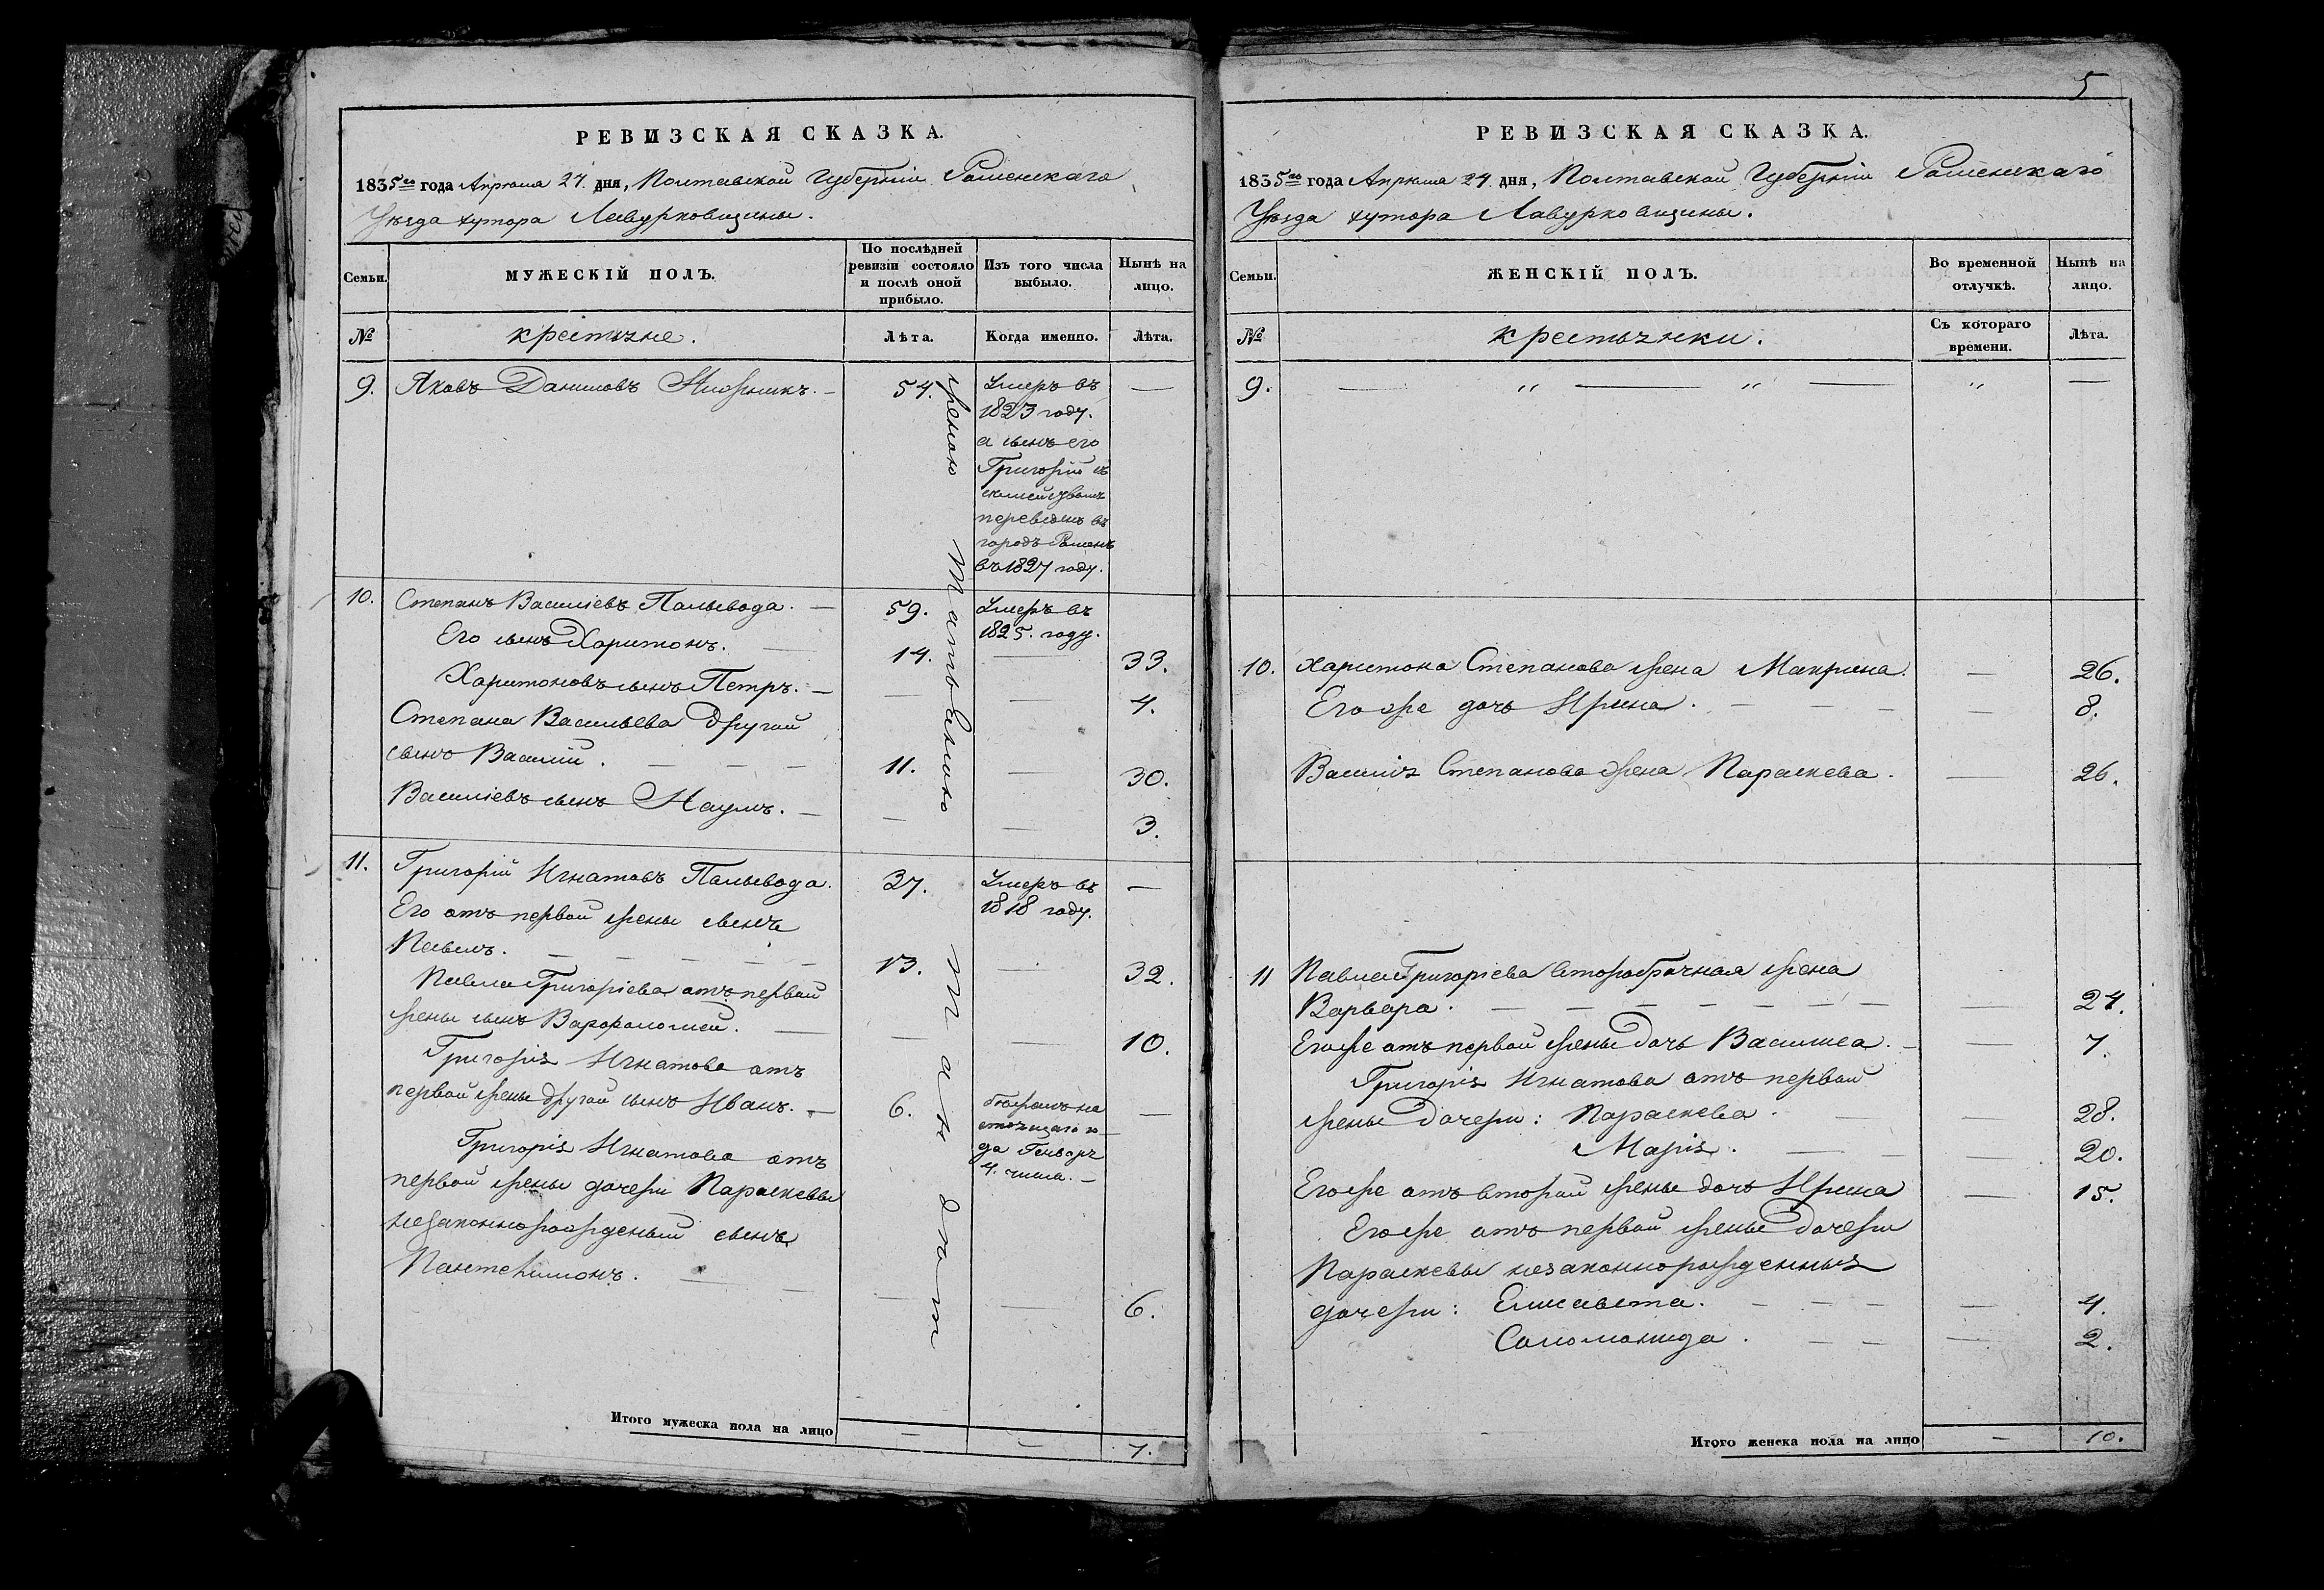 РЕВИЗСКАЯ СКАЗКА.
1835го года Апреля 27. дня, Полтавской Губерніи Роменскаго
Уѣзда хутора Лавурковщины.
Семьи.
МУЖЕСКІЙ ПОЛЪ.
По послѣдней ревизіи состояло и послѣ оной прибыло.
Изъ того числа выбыло.
Нынѣ на лицо.
№
крестьяне.
Лѣта.
Когда именно.
Лѣта.
9. Яковъ Даниловъ — 54. —
Умеръ въ
1823 году.
а сынъ его
Григорій съ
семействомъ
переведенъ въ
городъ Роменъ
въ 1827 году.
10. Степанъ Василіевъ Пальвода. — 59.
Умеръ въ
1825. году.
Его сынъ Харитонъ. — 14. — 33.
Харитоновъ сынъ Петръ. — — — 4.
Степана Васильева другой
сынъ Василій. — — — 11. — 30.
Василіевъ сынъ Наумъ. — — — 3.
11. Григорій Игнатовъ Пальвода. 37. —
Умеръ въ
1818 году.
Его отъ первой жены сынъ
Павелъ. — — — — — 13. — 32.
Павла Григоріева отъ первой
жены сынъ Варфоломей. — — — 10.
Григорія Игнатова отъ
первой жены другой сынъ Иванъ. — 6. —
года Генваря
4. числа. —
Григорія Игнатова отъ
первой жены дочери Параскевы
незаконнорожденый сынъ
Пантелимонъ. — — — — 6.
Итого мужеска пола на лицо — — 7.
5
РЕВИЗСКАЯ СКАЗКА.
1835го года Апреля 27. дня, Полтавской Губерніи Роменскаго
Уѣзда хутора Лавурковщины.
Семьи.
ЖЕНСКІЙ ПОЛЪ.
Во временной отлучкѣ.
Нынѣ на лицо.
№
крестьянки.
Съ котораго времени.
Лѣта.
9. — " — " — " —
10. Харитона Степанова жена Макрина. — 26.
Его же дочь Ирина. — — — — 8.
Василія Степанова жена Параскева. — 26.
11 Павла Григоріева второбрачная жена
Варвара. — — — — — — — 24.
Его же отъ первой жены дочь Василиса. — — 7.
Григорія Игнатова отъ первой
жены дочери: Параскева. — — 28.
Марія. — — — 20.
Его же отъ второй жены дочь Ирина — 15.
Его же отъ первой жены дочери
Параскевы незаконнорожденныя
дочери: Елисавета. — — — — 4.
Соломонида. — — — 2.
Итого женска пола на лицо — 10.